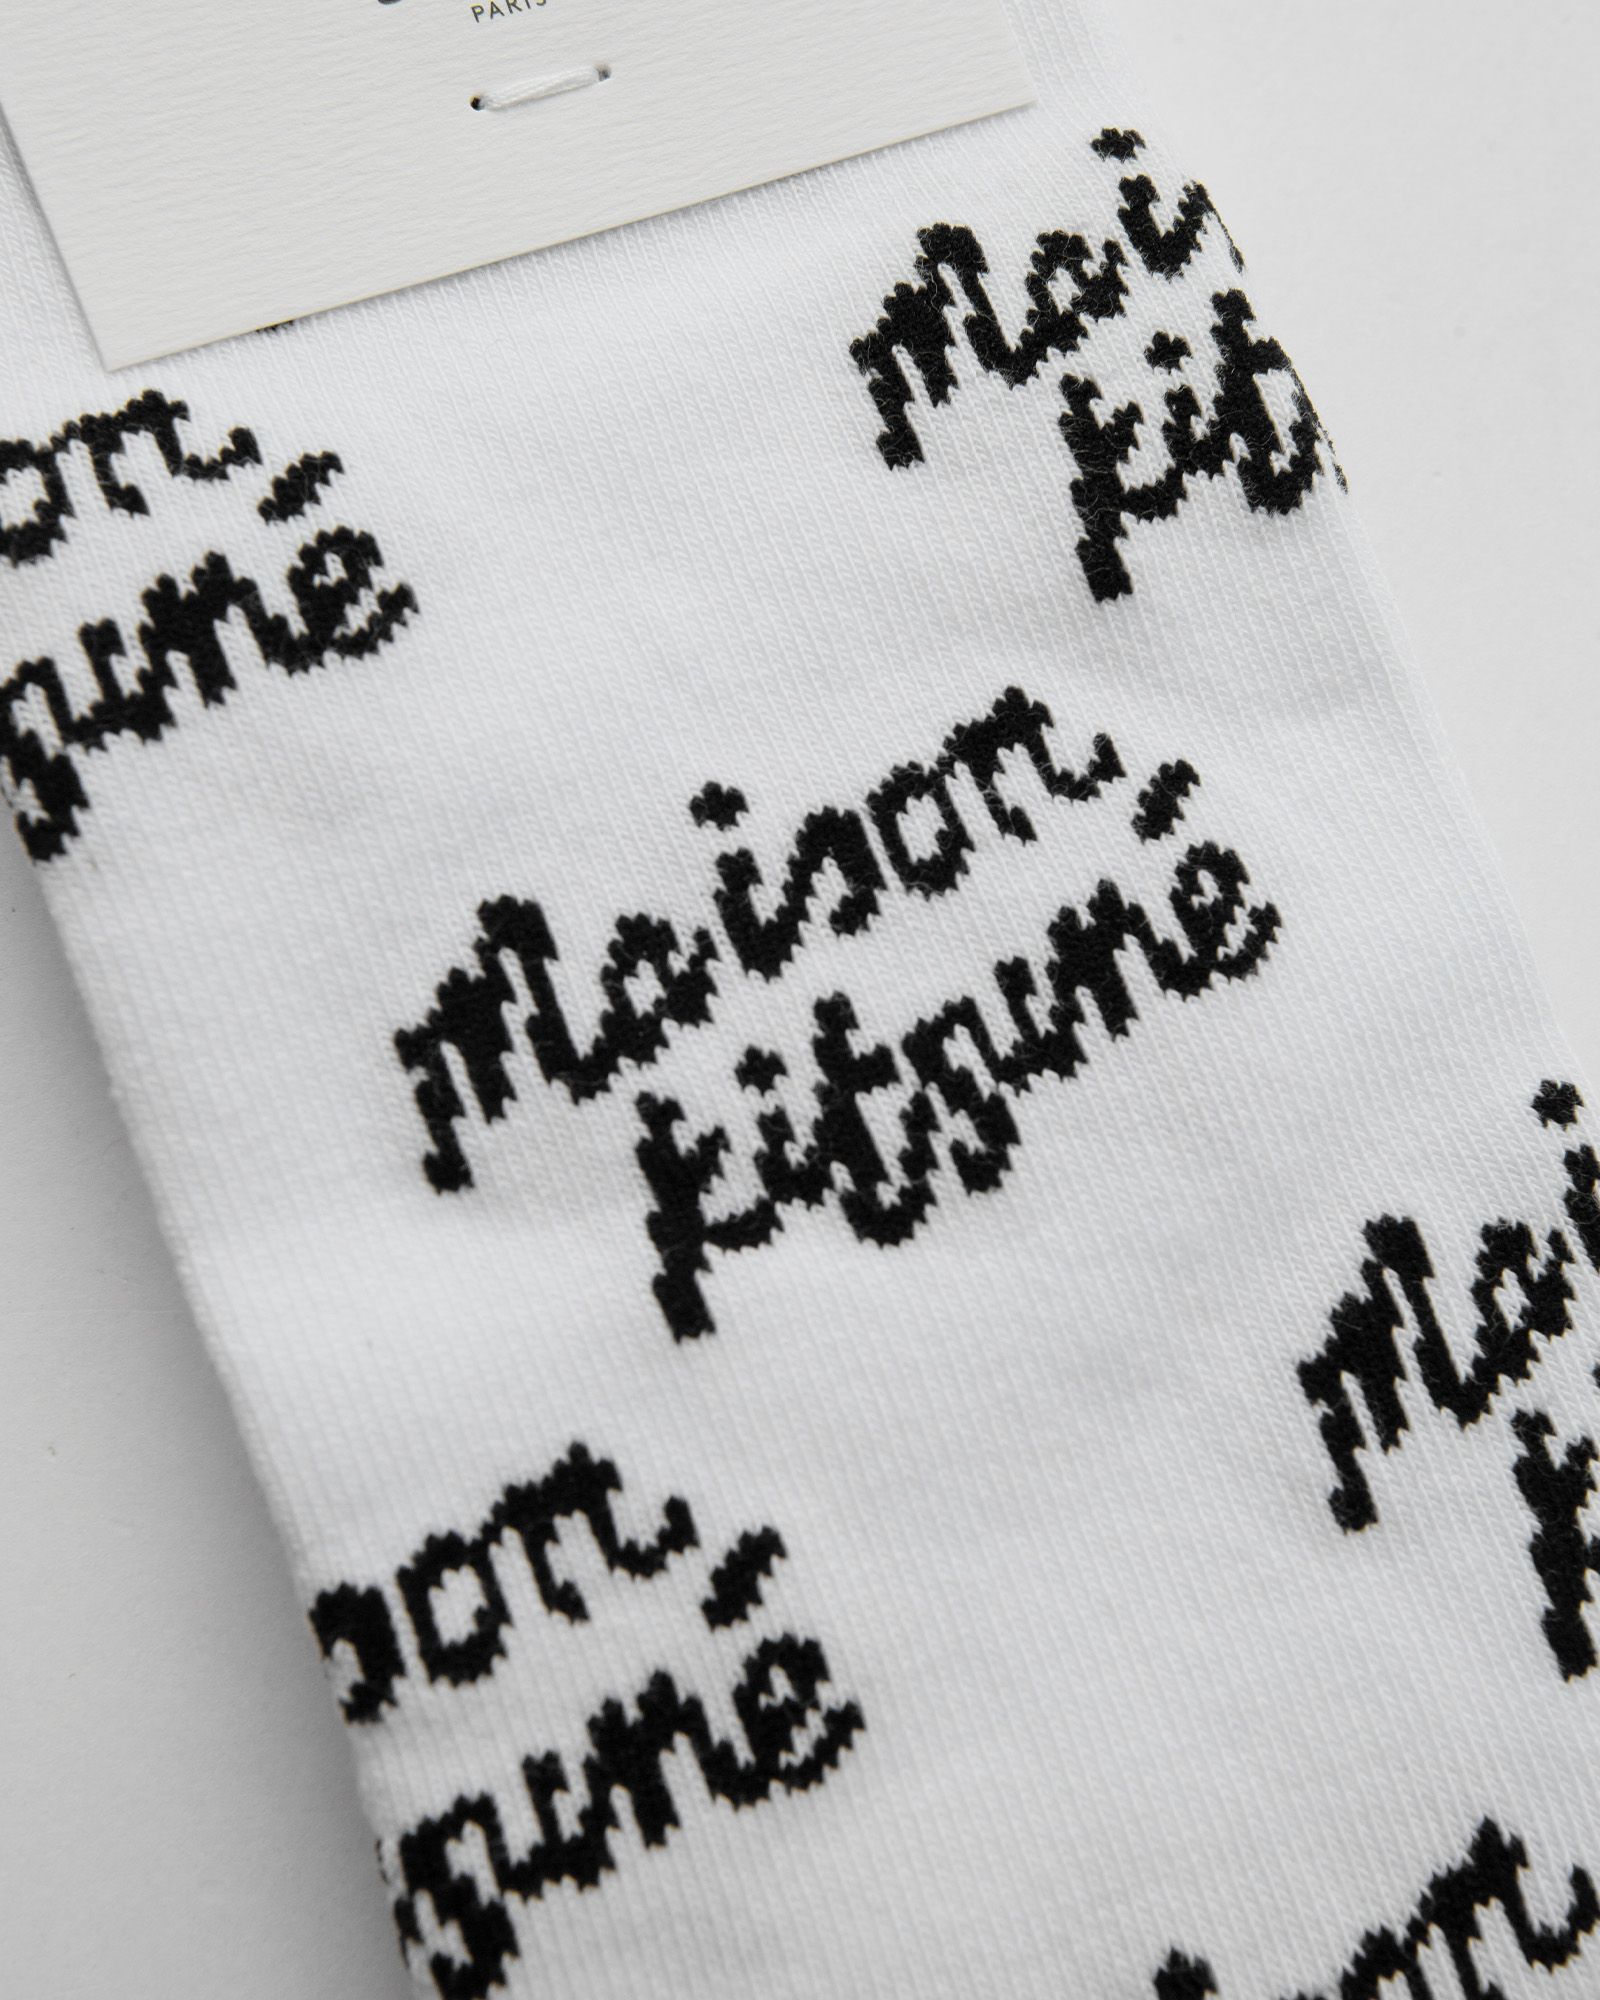 PARIS
Mai
Kit
on
suné
Maison
Kitsuné
Mai
Ki
son
suné
ison